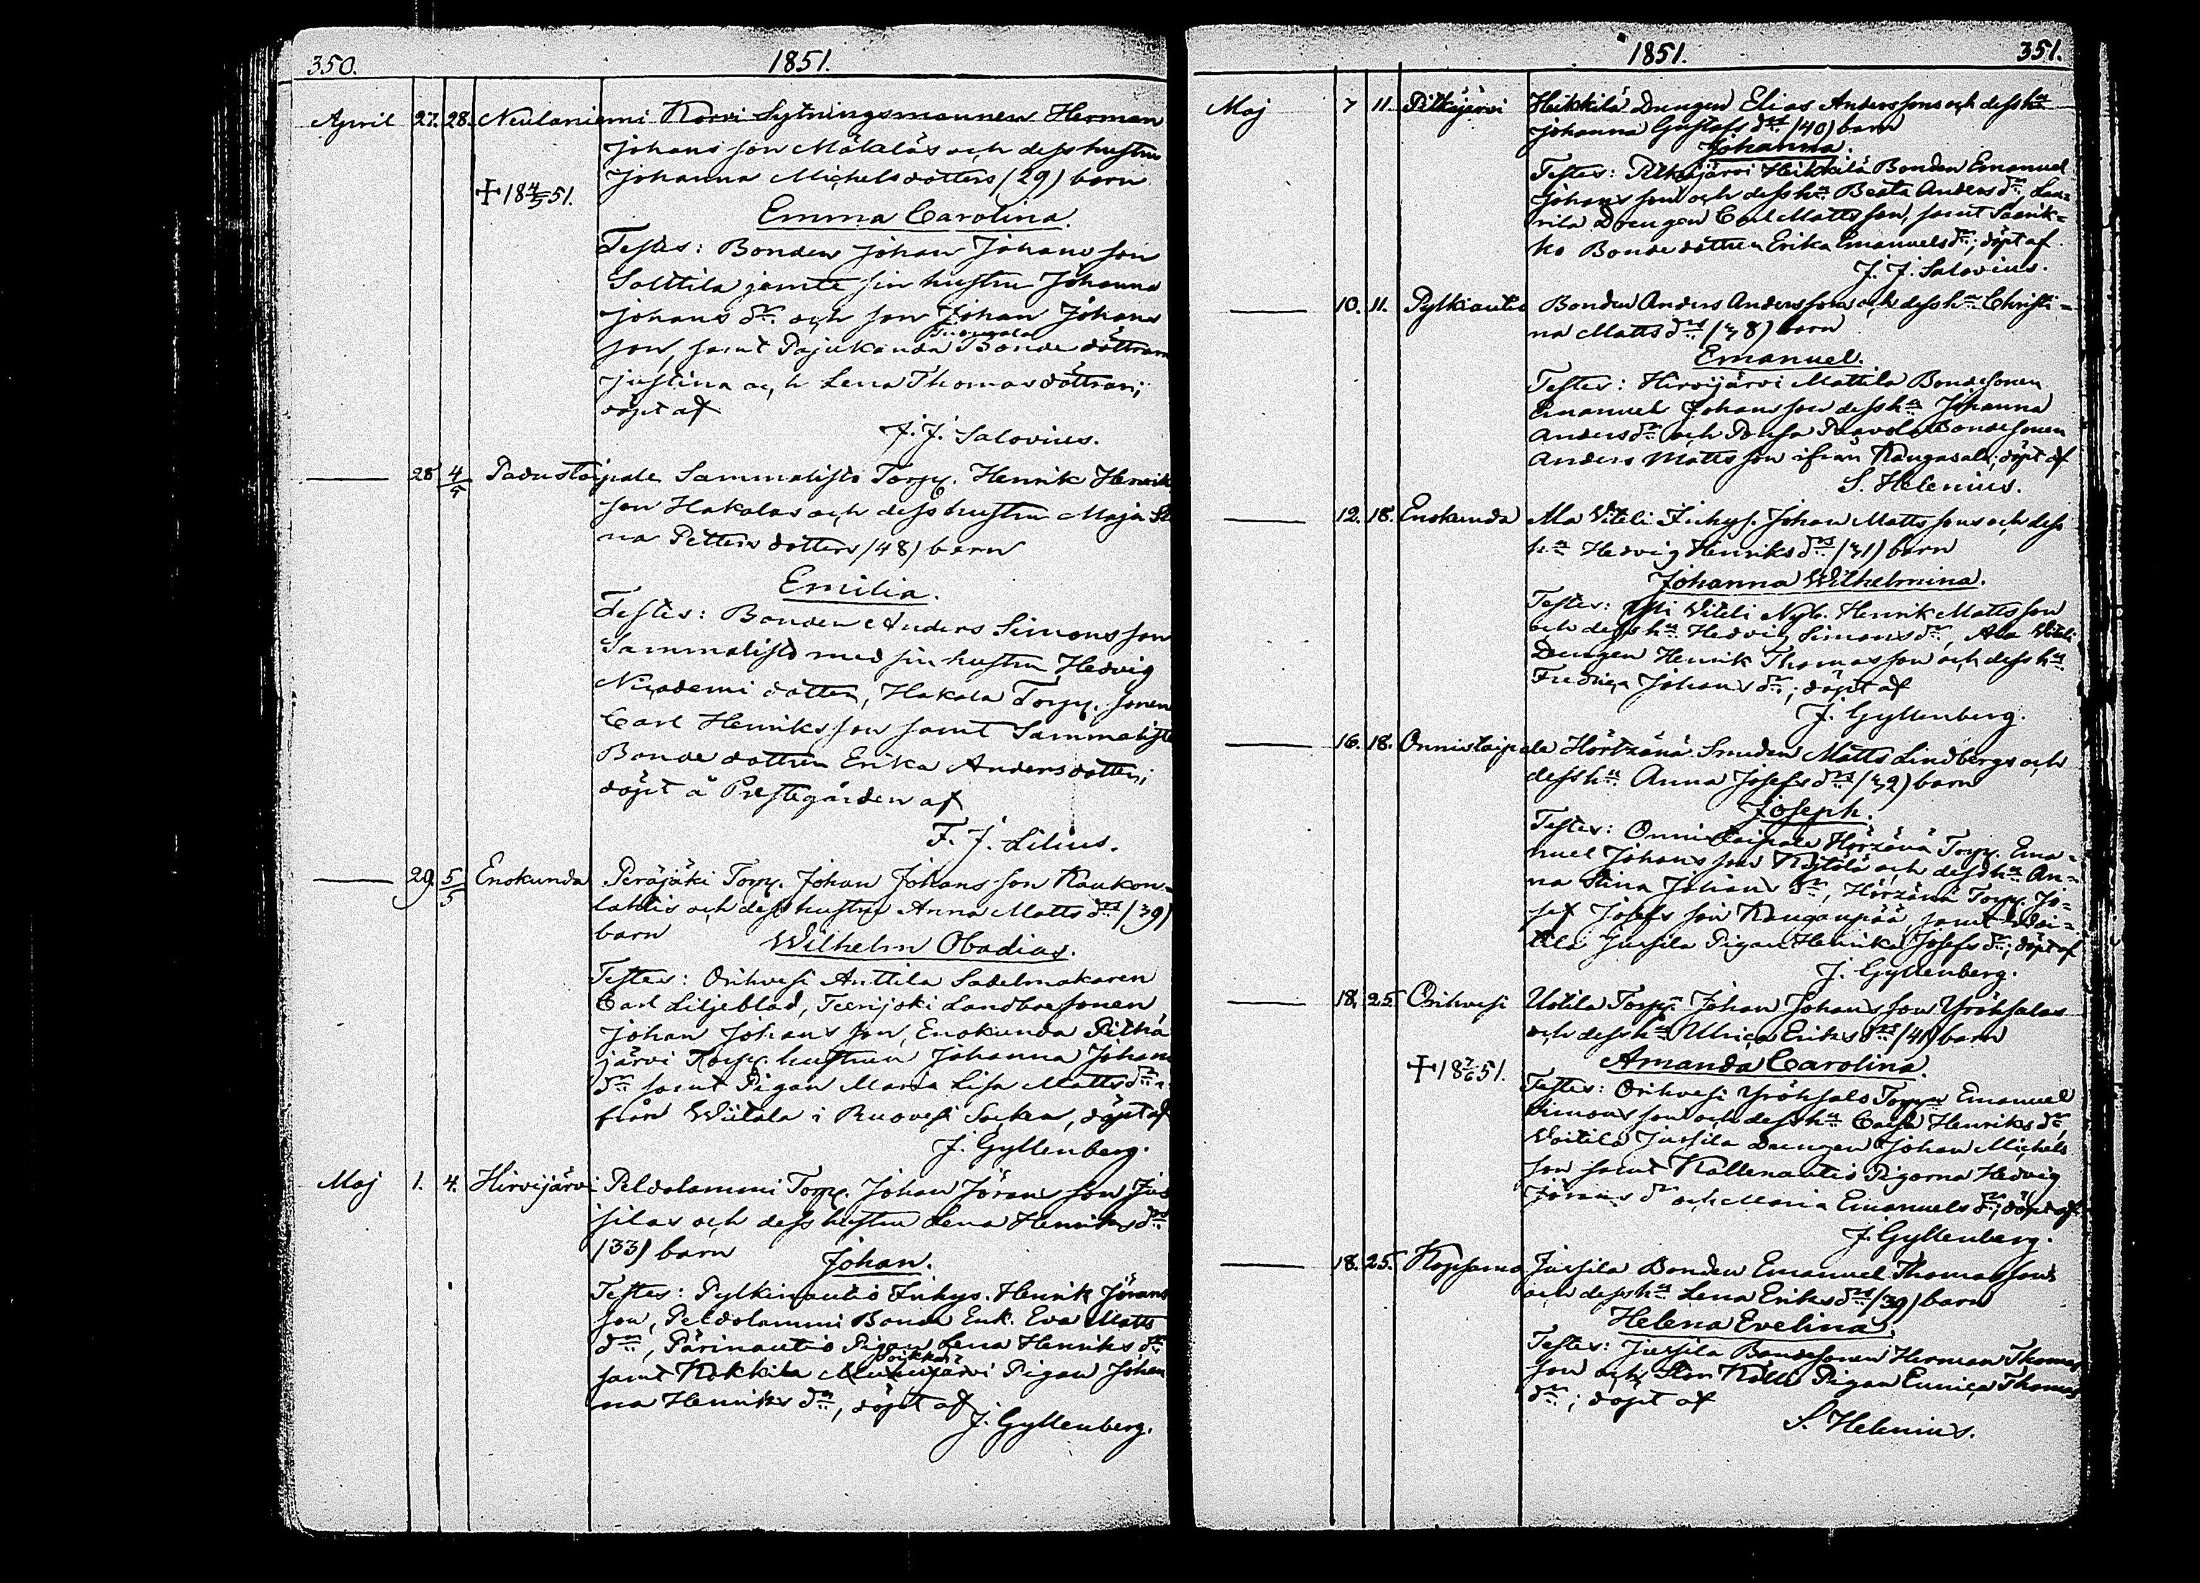 350. 1851.
April 27. 28. Neulaniemi Korvi Sytningsmannen Herman
Johans son Mäkeläs och dess hustru
Johanna Michelsdotters (29) barn
+ 18 4/5 51.
Emma Carolina.
Testes: Bonden Johan Johans son
Solttila jemte sin hustru Johanna
Johans dr. och son Johan Johans
son, samt Pajukanda Bonde döttrarne
Justina och Lena Thomasdöttrar;
döpt af
J. J. Salovius.
28 4/5 Padustaipale Sammalisto Torp. Henrik Henriks
son Hakalas och dess hustru Maja Sti
na Petters dotters (48) barn
Emilia.
Testes: Bonden Anders Simons son
Sammalisto med sin hustru Hedvig
Nicodemi dotter, Hakala Torp. sonen
Carl Henriks son samt Sammalisto
Bonde dottren Erika Andersdotter;
döpt å Prestegården af
F. J. Lilius.
29. 5/5 Enokunda Peräjäki Torp. Johan Johans son Kaukon-
lahtis och dess hustru Anna Matts drs (39)
barn
Wilhelm Obadias.
Testes: Orihvesi Anttila Sadelmakaren
Carl Liljeblad, Teerijoki Landbosonen
Johan Johans son, Enokunda Pitkä
järvi Torp. hustrun Johanna Johans
dr. samt Pigan Maria Lisa Matts dr.
från Wiitala i Ruovesi Socken, döpt af
J. Gyllenberg.
Maj 1. 4. Hirvijärvi Peldolammi Torp. Johan Jörans son Jus
silas och dess hustru Lena Henriks drs
(33) barn
Johan.
Testes: Pylkinautio Inhys. Henrik Jörans
son, Peldolammi Bonde Enk. Eva Matts
dr., Pärinautio Pigan Lena Henriks dr.
samt Kokkila Pigan Johan
na Henriks dr., döpt af
J. Gyllenberg.
1851. 351.
Maj 7 11. Pitkäjärvi Heikkilä Drengen Elias Anders sons och dess ha
Johanna Gustafs drs (40) barn
Johanna.
Testes: Pitkäjärvi Heikkilä Bonden Emanuel
Johans son och dess ha Beata Anders dr., Lau-
rila Drengen Carl Matts son, samt Saarik-
ko Bondedottren Erika Emanuels dr.; döpt af
J. J. Salovius.
10. 11. Pylkinautio Bonden Anders Anders sons och dess ha Christi-
na Matts drs (38) barn
Emanuel.
Testes: Hirvijärvi Mattila Bondesonen
Emanuel Johans son dess ha Johanna
Anders dr. och Paavola Bondesonen
Anders Matts son ifrån Kangasala; döpt af
S. Helenius.
12. 18. Enokunda Ala Viteli Inhys. Johan Matts sons och dess
ha Hedvig Henriks drs (31) barn
Johanna Wilhelmina.
Testes: Yli Witeli Nyb. Henrik Matts son
och dess ha Hedvig Simons dr., Ala Witeli
Drengen Henrik Thomas son och dess ha
Fredrica Johans dr.; döpt af
J. Gyllenberg.
16. 18. Onnistaipale Hörtzänä Smeden Matts Lindbergs och
dess ha Anna Josefs drs (32) barn
Joseph.
Testes: Onnistaipale Hörzänä Torp. Ema-
nuel Johans son och dess ha An-
na Stina Johans dr., Hörzänä Torp. Jo-
sef Josefs son Kanganpää samt Woi-
tila Jussila Pigan Henrika Josefs dr.; döpt af
J. Gyllenberg.
18. 25. Orihvesi Uotila Torp. Johan Johans son Yröhsalas
och dess ha Ulrica Eriks drs (41) barn
+ 18 7/6 51.
Amanda Carolina.
Testes: Orihvesi Yröhsala Torp. Emanuel
Simons son och dess ha Caisa Henriks dr.,
Woitila Jussila Drengen Johan Michels
son samt Kallenautio Pigorna Hedvig
Jörans dr. och Maria Emanuels dr.; döpt af
J. Gyllenberg.
18. 25. Kopsamo Jussila Bonden Emanuel Thomas sons
och dess ha Lena Eriks drs (39) barn
Helena Evelina.
Testes: Jussila Bondesonen Herman Thomas
son och Pigan Eunica Thomas
dr.; döpt af
S. Helenius.